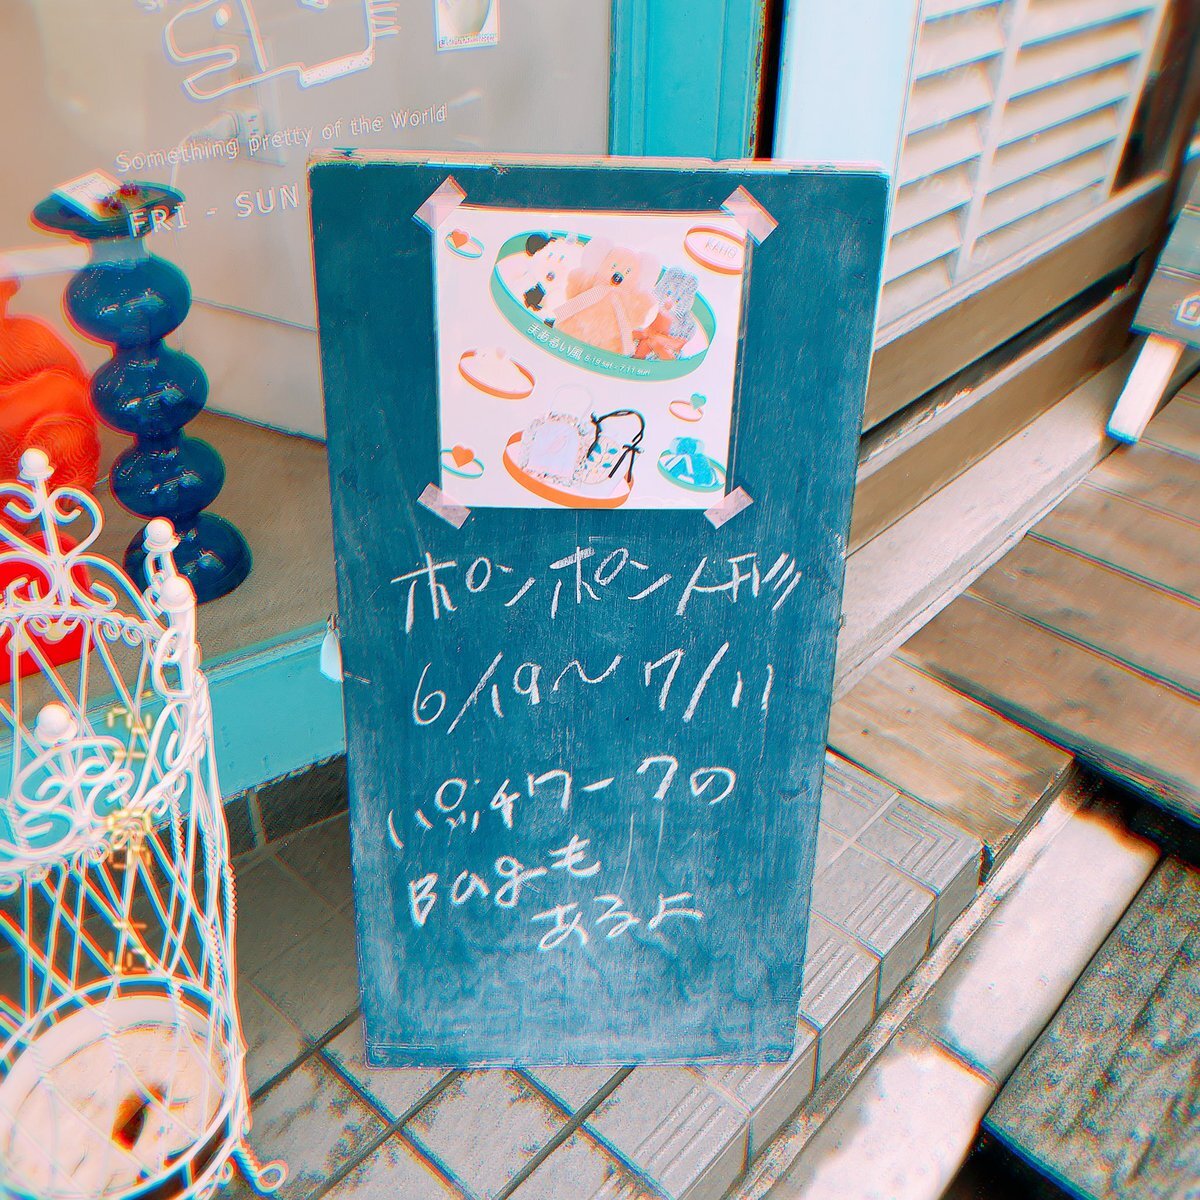 Something pretty of the World
FRI - SUN
KAHO
まあるい風 6.19 sat - 7.11 sun
ポンポン人形
6/19〜7/11
パッチワークの
Bagも
あるよ